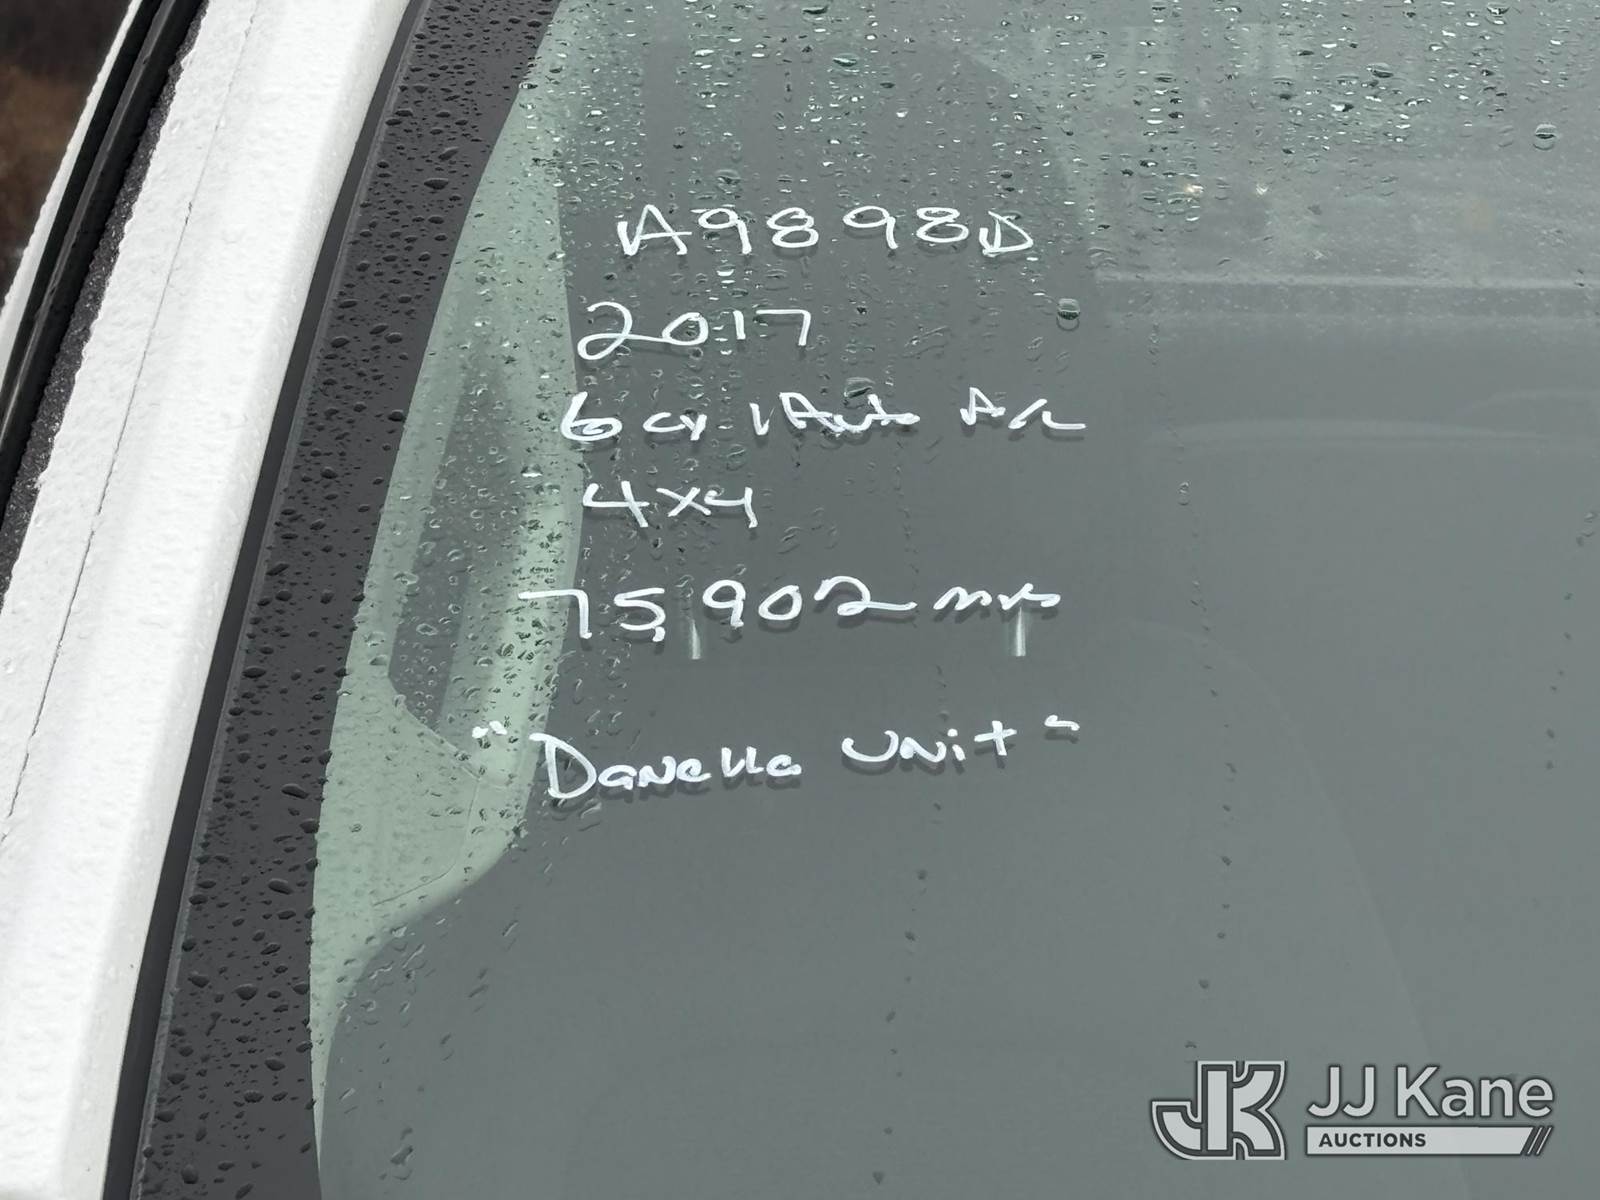 A9898D
2017
6 cy l Auto A/C
4x4
75,902 miles
"Danella Unit"
JK JJ Kane
AUCTIONS